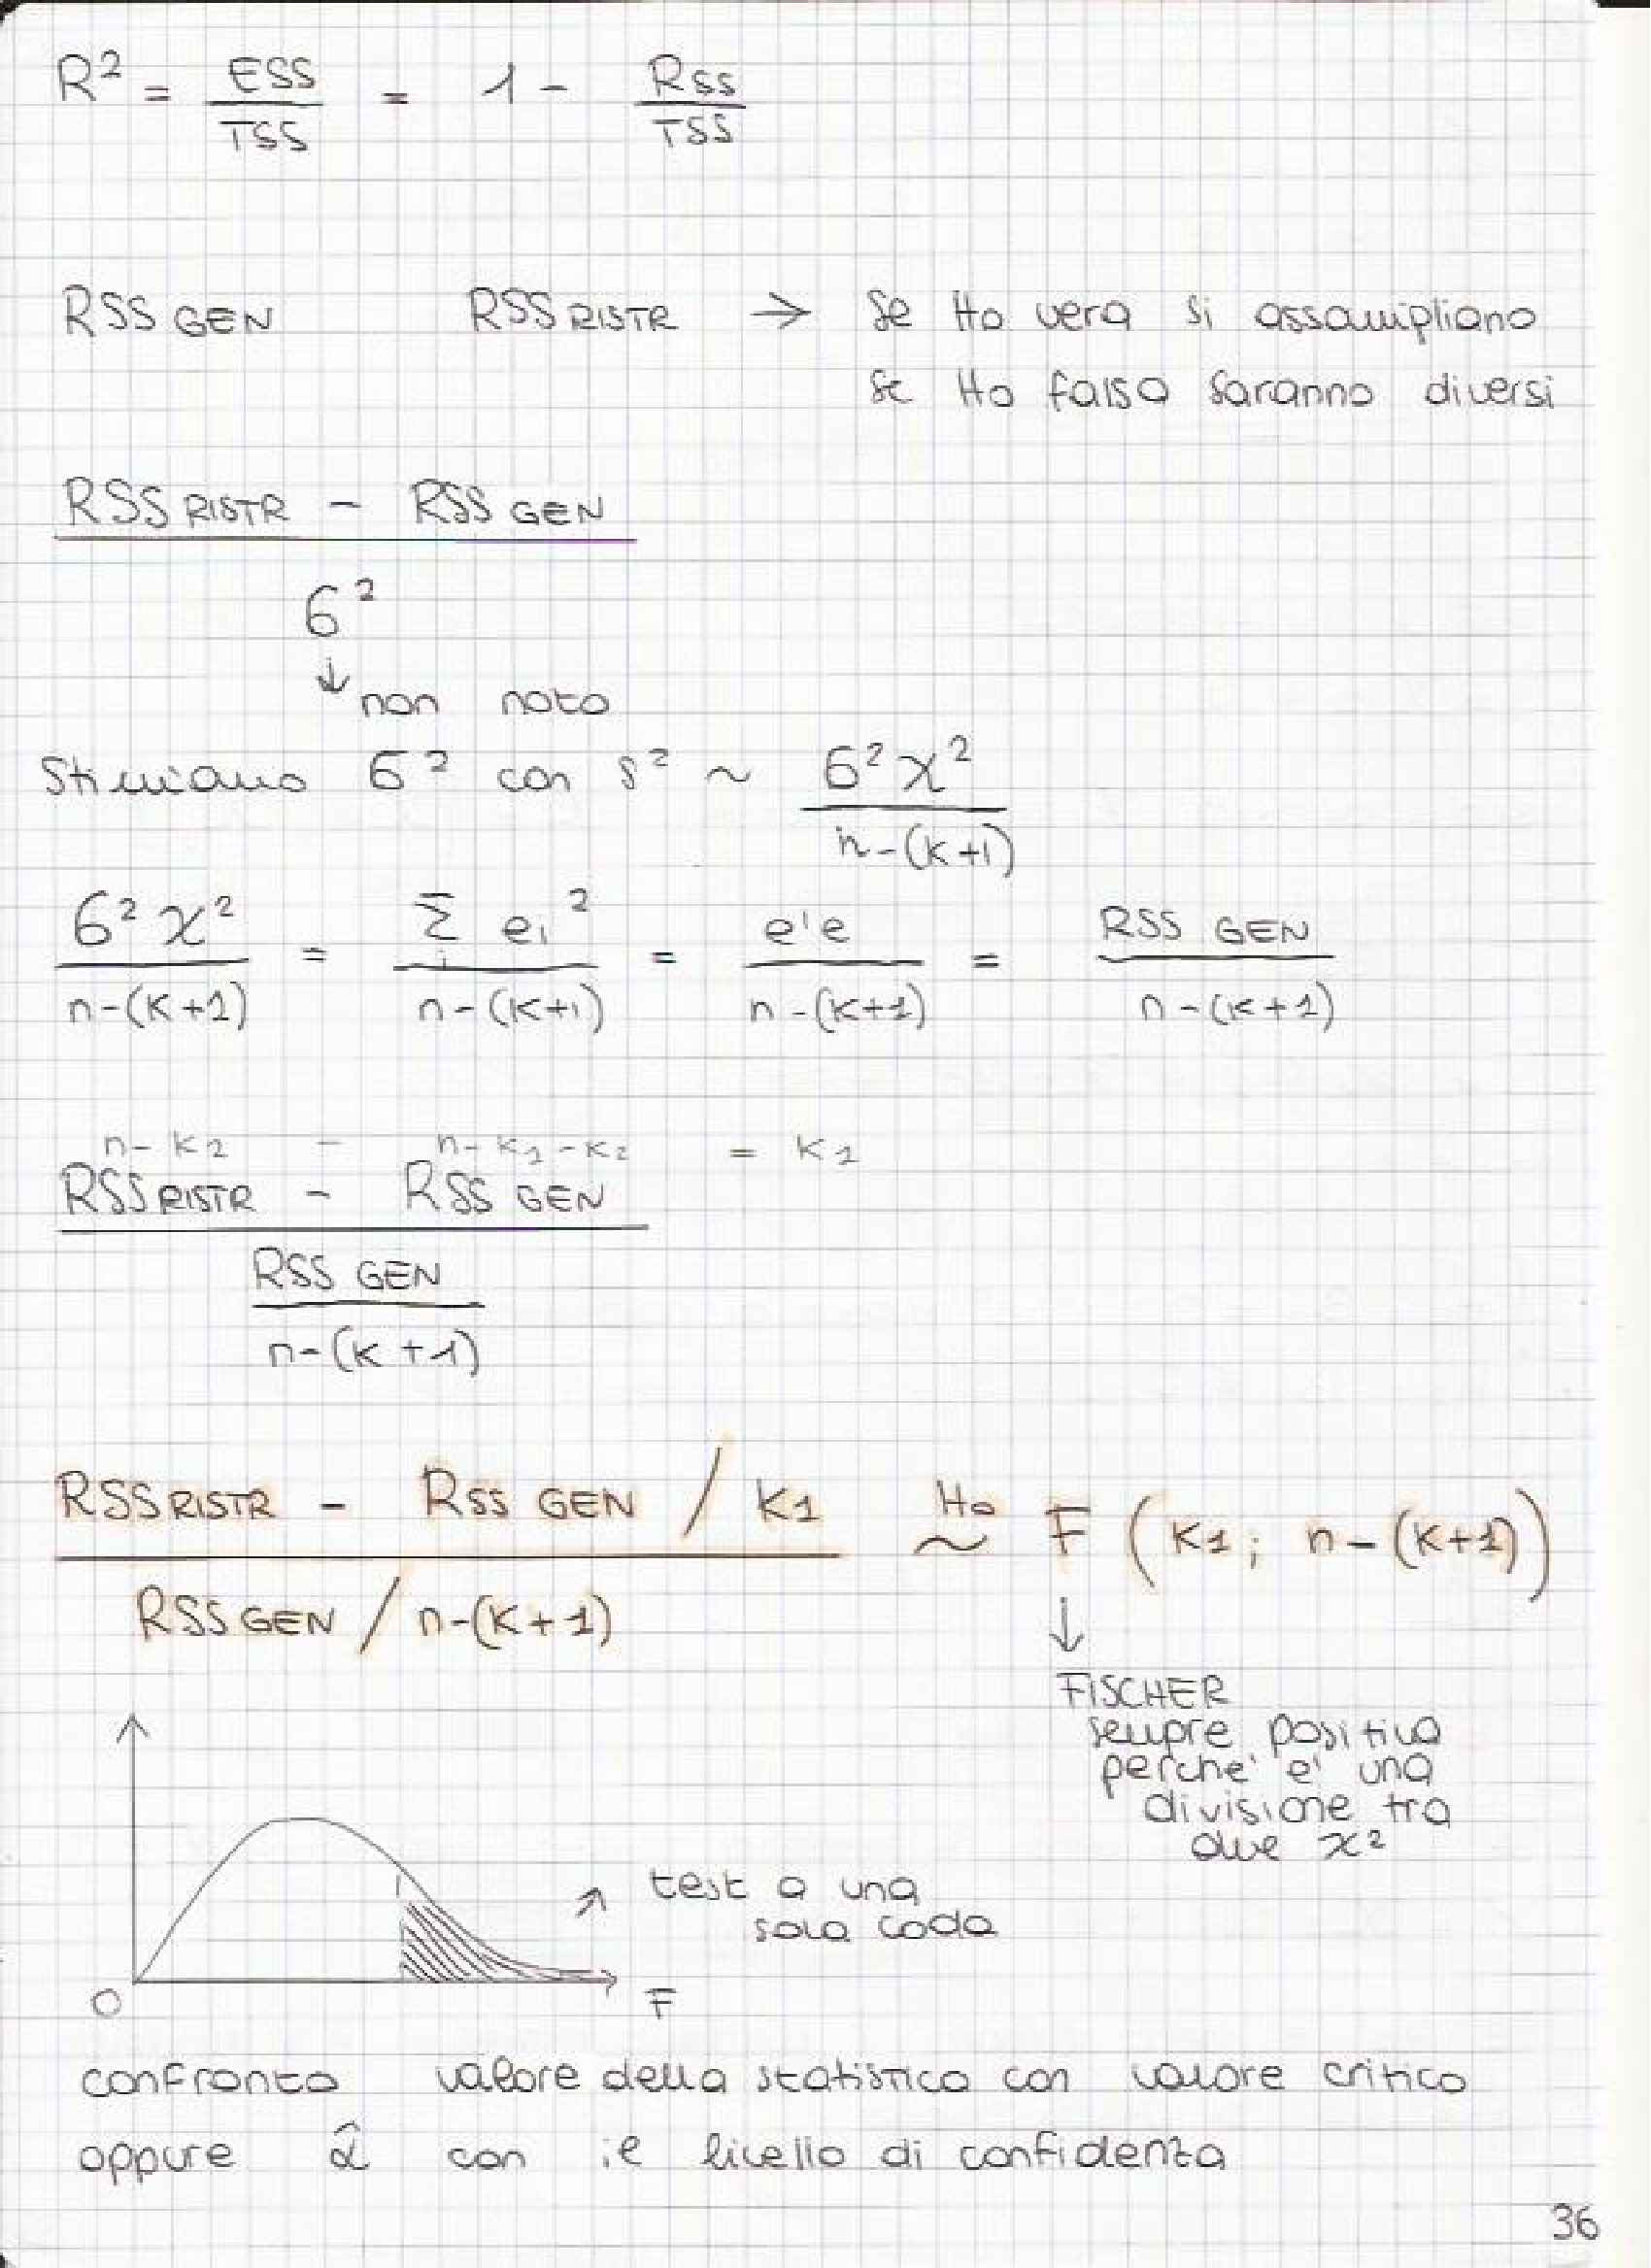 R² = ESS / TSS = 1 - RSS / TSS
RSS GEN RSS RISTR → Se H0 vera si assomigliano
Se H0 falsa saranno diversi
RSS RISTR - RSS GEN
σ²
↓ non noto
Stimiamo σ² con s² ~ σ² χ² / n-(k+1)
σ² χ² / n-(k+1) = Σi ei² / n-(k+1) = e'e / n-(k+1) = RSS GEN / n-(k+1)
n-k2 - n-k1-k2 = k1
RSS RISTR - RSS GEN
RSS GEN
n-(k+1)
RSS RISTR - RSS GEN / k1 H0 ~ F (k1; n-(k+1))
RSS GEN / n-(k+1)
↓
FISCHER
sempre positiva
perche' e' una
divisione tra
due χ²
↗ test a una
sola coda
O F
confronto valore della statistica con valore critico
oppure α̂ con il livello di confidenza
36